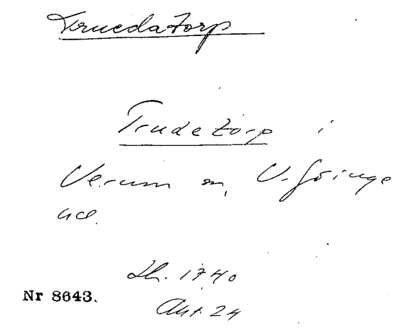 Truedatorp
Trudetorp i
Verum sn, V. Göinge
hd.
Lh. 1740
Akt. 24
Nr 8643.